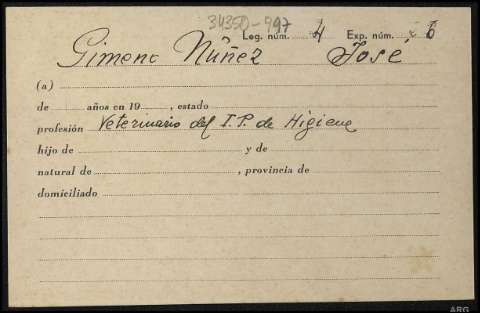 34350-497
Leg. núm. 4 Exp. núm. 6
Gimeno Núñez José
(a)
de años en 19 , estado
profesión Veterinario del I.P. de Higiene
hijo de y de
natural de , provincia de
domiciliado
ARG